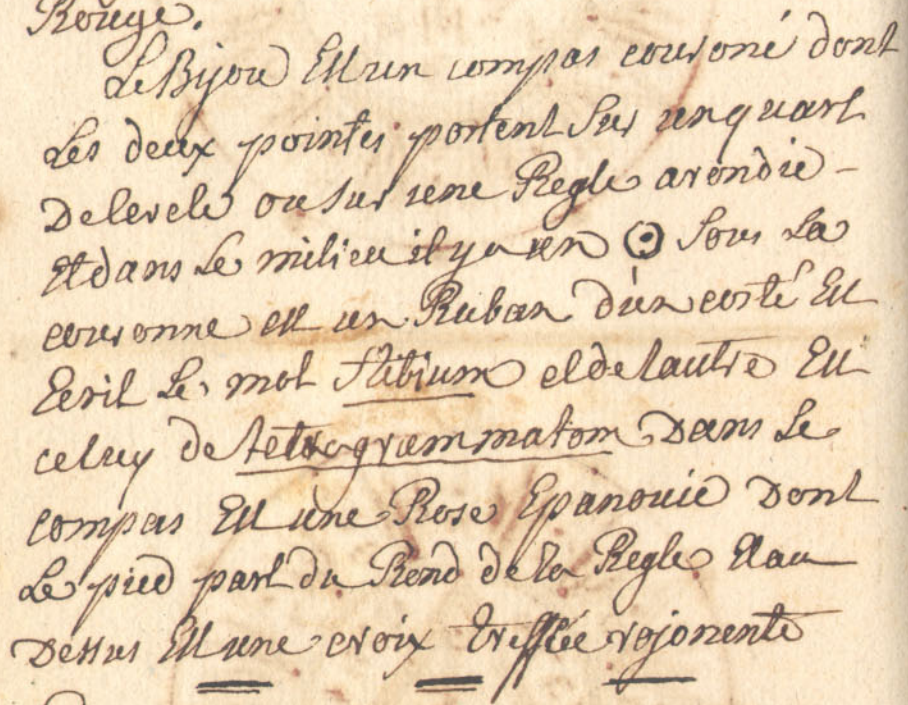 Rouge.
Le Bijou Est un compas couroné dont
Les deux pointes portent Sur un quart
De cercle ou sur une Regle arondie -
Et dans Le milieu il y a un ☉ Sous La
couronne est un Ruban d'un costé Est
Ecrit Le mot Stibium et de l'autre Est
celuy de tetragrammatom Dans Le
compas Est une Rose Epanouie Dont
Le pied part du Rond de la Regle Et au
Dessus Est une croix trefflée rojonente